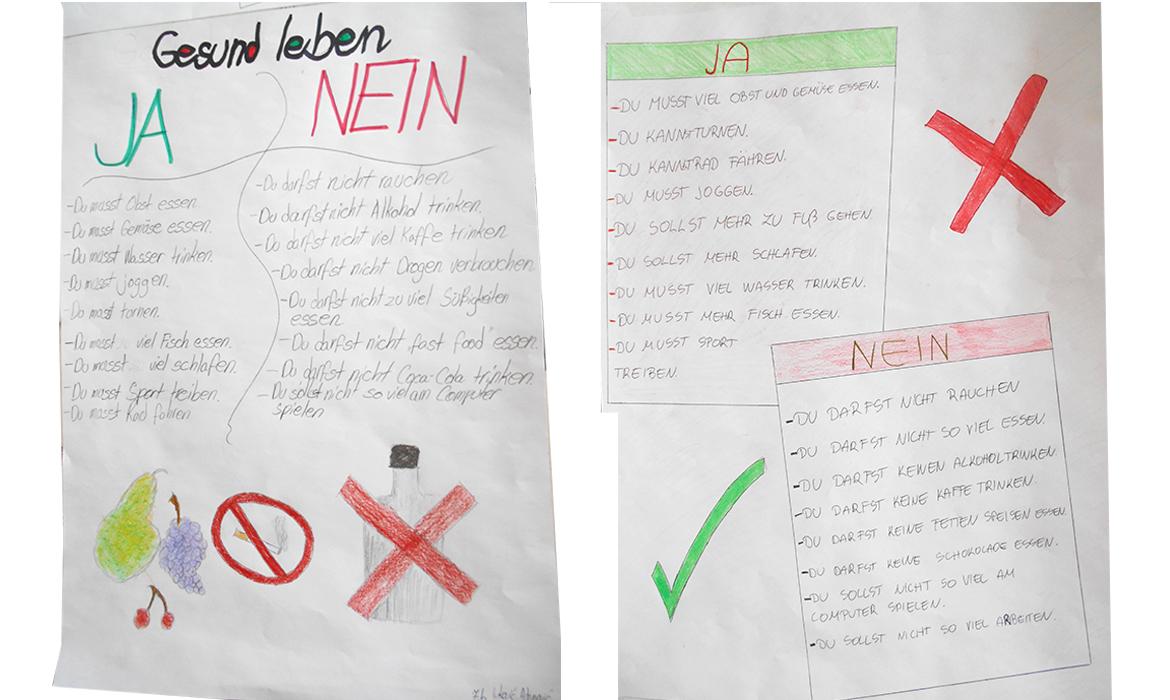 Gesund leben
JA
NEIN
-Du musst Obst essen.
-Du musst Gemüse essen.
-Du musst Wasser trinken.
-Du musst joggen.
-Du musst tornen.
-Du musst viel Fisch essen.
-Du musst viel schlafen.
-Du musst Sport treiben.
-Du musst Rad fahren
-Du darfst nicht rauchen
-Du darfst nicht Alkohol trinken.
-Du darfst nicht viel Kaffe trinken
-Du darfst nicht Drogen verbrauchen
-Du darfst nicht zu viel Süßigkeiten
essen
-Du darfst nicht „fast food" essen.
-Du darfst nicht Coca-Cola trinken.
-Du sollst nicht so viel am Computer
spielen
7b
JA
-DU MUSST VIEL OBST UND GEMÜSE ESSEN.
-DU KANNST TURNEN.
-DU KANNST RAD FÄHREN.
-DU MUSST JOGGEN.
-DU SOLLST MEHR ZU FUß GEHEN
-DU SOLLST MEHR SCHLAFEN.
-DU MUSST VIEL WASSER TRINKEN.
-DU MUSST MEHR FISCH ESSEN.
-DU MUSST SPORT
TREIBEN.
NEIN
-DU DARFST NICHT RAUCHEN
-DU DARFST NICHT SO VIEL ESSEN.
-DU DARFST KEINEN ALKOHOL TRINKEN.
-DU DARFST KEINE KAFFE TRINKEN.
-DU DARFST KEINE FETTEN SPEISEN ESSEN.
-DU DARFST KEINE SCHOKOLADE ESSEN.
-DU SOLLST NICHT SO VIEL AM
COMPUTER SPIELEN.
-DU SOLLST NICHT SO VIEL ARBEITEN.